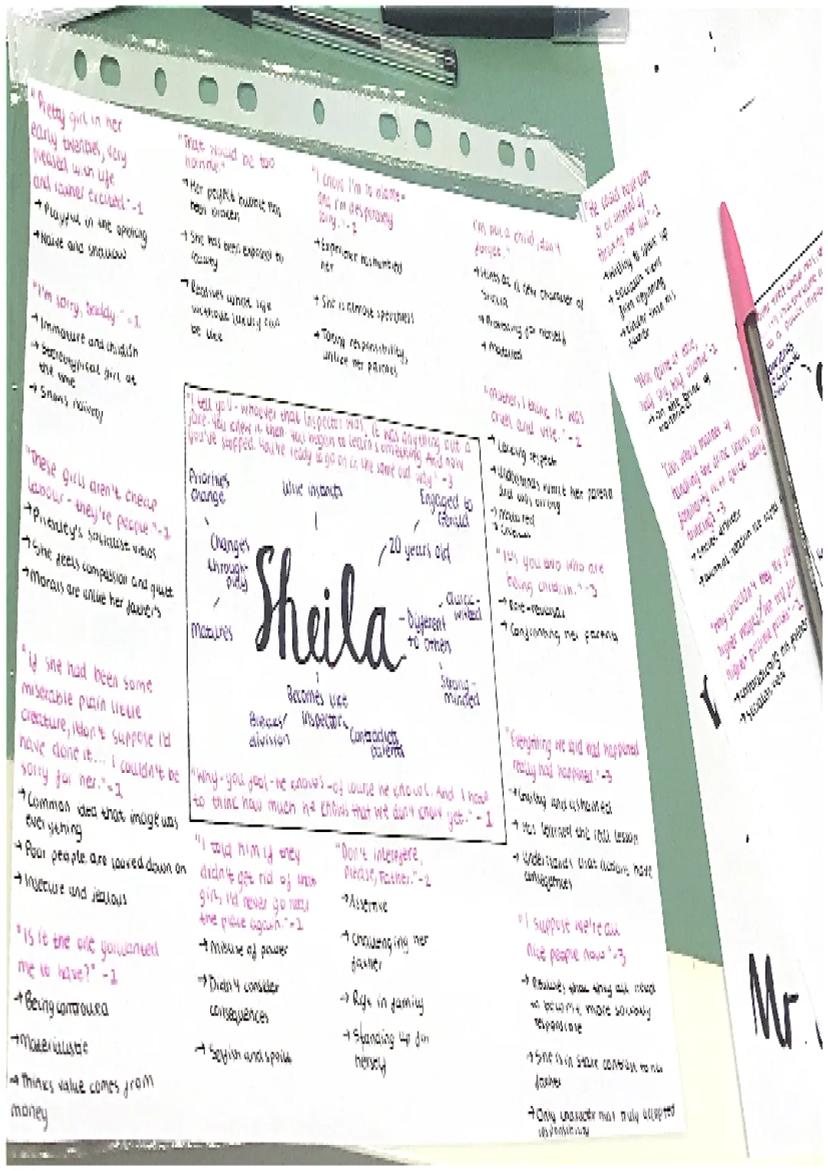 "Pretty girl in her
early twenties, very
pleased with life
and rather excited" -1
→ Playful in the opening
→ Naive and
"I'm sorry, daddy." -1
→ Immature and childish
→ Stereotypical girl at
the time
→ Shows naivety
"These girls aren't cheap
labour - they're people" -1
→ Priestly's socialist views
→ She feels compassion and guilt
→ Morals are unlike her father's
"if she had been some
miserable plain little
creature, I don't suppose I'd
have done it... I couldn't be
sorry for her." -1
→ Common idea that image was
everything
→ Poor people are looked down on
→ Insecure and jealous
"Is it the one you wanted
me to have?" -1
→ Being controlled
→ Materialistic
→ Thinks value comes from
money
"That would be too
horrible"
→ Her perfect bubble has
been broken
→ She has been exposed to
reality
→ Realises what life
without luxury can
be like
"I know I'm to blame -
and I'm desperately
sorry." -1
→ Inspector has humbled
her
→ She is almost speechless
→ Taking responsibility,
unlike her parents
"I'm not a child, don't
forget."
→ Hints at a new character of
Sheila
→ for herself
→ Matured
"Mother, I think it was
cruel and vile." -2
→ Lacking respect
→ Understands what her parent
did was wrong
→ Matured
"It's you two who are
being childish." -3
→ Role-reversal
→ Confronting her parents
"Everything we said had happened
really had happened." -3
→ Guilty and ashamed
→ Has learned the real lesson
→ Understands that actions have
consequences
"I suppose we're all
nice people now" -3
→ Realises that they all need
to become more socially
responsible
→ She is in stark contrast to her
father
→ Only character that truly accepted
responsibility
"I tell you - whoever that Inspector was, it was anything but a
joke. You knew it then. You began to learn something. And now
you've stopped. You're ready to go on in the same old way." -3
Priorities
change
Changes
through
play
Matures
Engaged to
Gerald
20 years old
Quick-
witted
Different
to others
Strong-
minded
Sheila
Becomes like
Inspector
division
Contradicts
parents
"Why - you fool - he knows - of course he knows. And I hate
to think how much he knows that we don't know yet." -1
"I told him if they
didn't get rid of that
girl, I'd never go near
the place again." -1
→ Misuse of power
→ Didn't consider
consequences
→ Selfish and spoilt
"Don't interfere,
please, Father." -2
→ Assertive
→ Challenging her
father
→ Rift in family
→ Standing up for
herself
"He could have kept
her on instead of
throwing her out" -1
→ Willing to speak up
Mr.